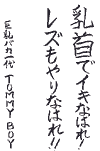 乳首でイキなはれ!
レズもやりなはれ!!
巨乳バカ一代 TOMMY BOY